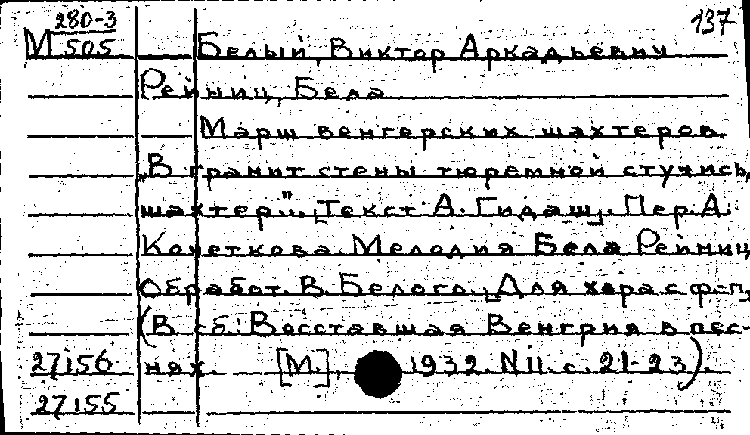 280-3 137
М 505 Белый, Виктор Аркадьевич
Рейниц, Бела
Марш венгерских шахтеров.
„В гранит стены тюремной стучись,
шахтер"... [Текст А. Гидаш]. Пер. А.
Кочеткова. Мелодия Бела Рейниц,
Обработ. В. Белого. [Для хора с ф-п]
(В сб: Восставшая Венгрия в пес-
27156 нях. [М.], 1932. N11. с. 21-23).
27155